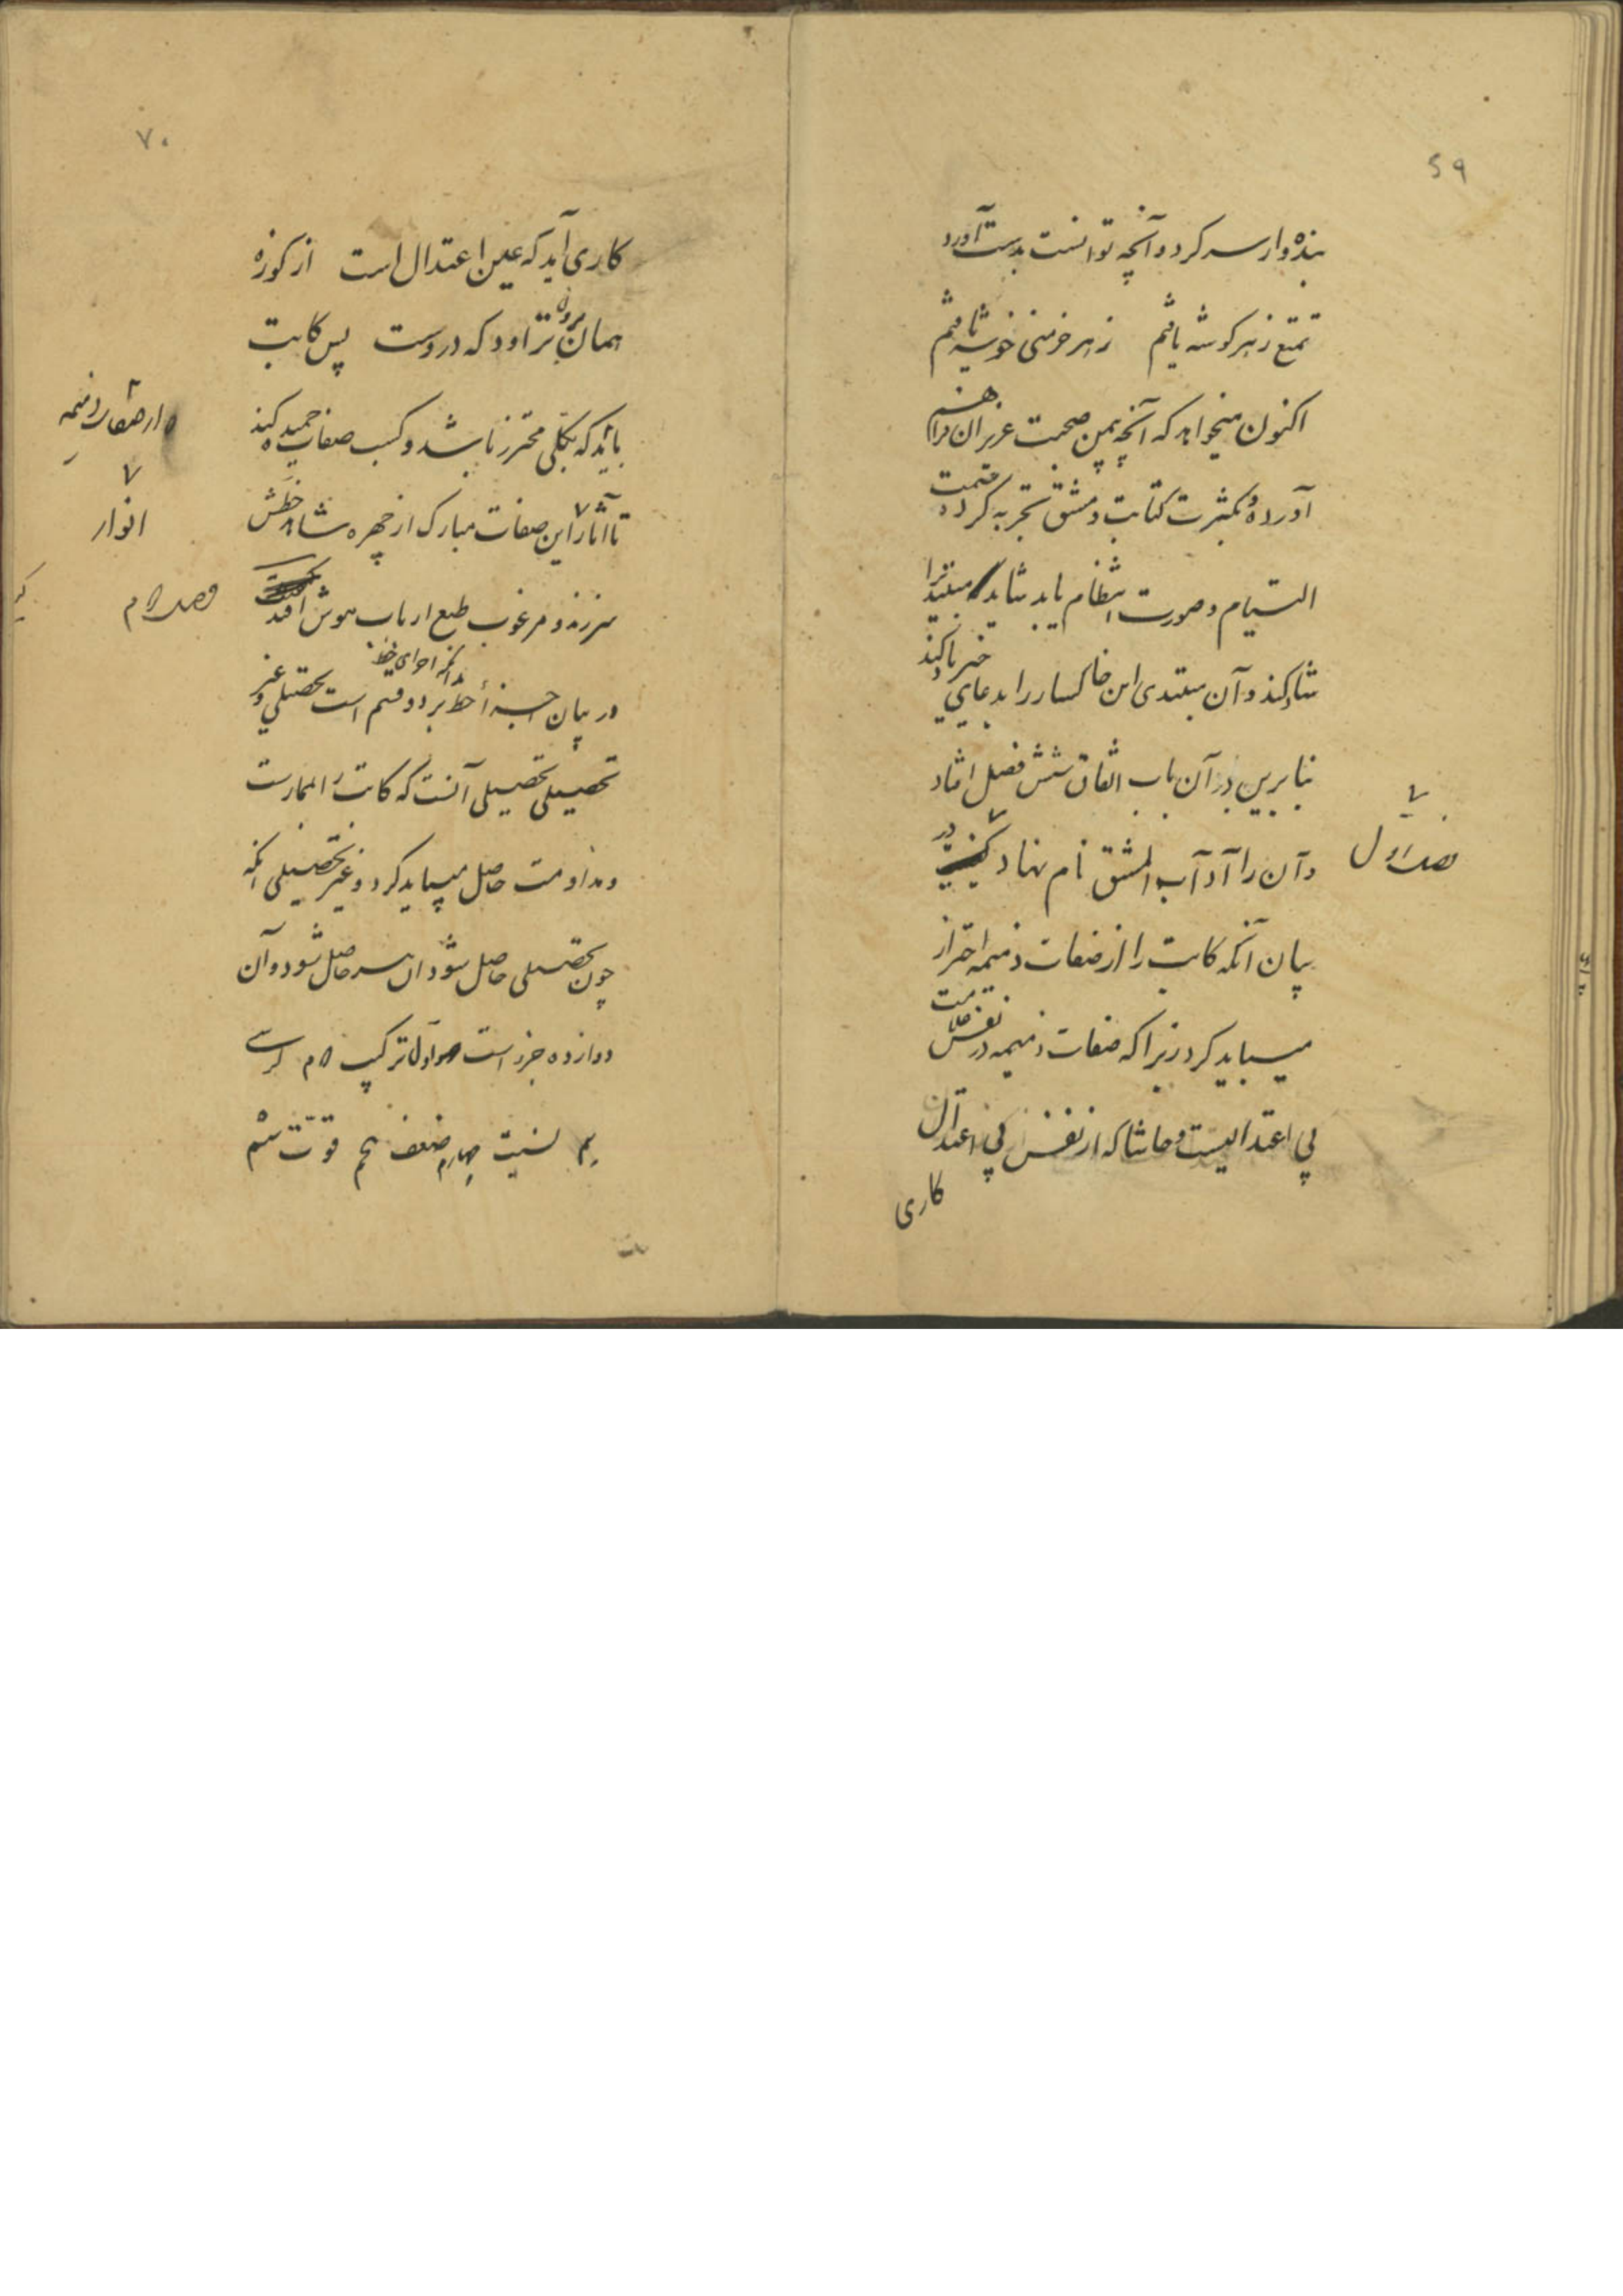 ۵۹
بنده وار سر کرد و آنچه توانست بدست آورد
تمتع ز هر گوشه یافتم ز هر خرمنی خوشه یافتم
اکنون میخواهد که آنچه بیمن صحبت عزیزان فراهم
آورده و بکثرت کتابت و مشق تجربه کرده
التیام و صورت انتظام یابد شاید مبتدیرا
شاد کند و آن مبتدی این خاکسار را بدعایی خیر یاد کند
بنابرین در آن باب اتفاق شش فصل افتاد
و آن را آداب المشق نام نهاد در
فصل اول
بیان آنکه کاتب را از صفات ذمیمه احتراز
میباید کرد زیرا که صفات ذمیمه در نفس علامت
بی اعتدالیست و حاشا که از نفس بی اعتدال
کاری
۷۰
کاری آید که عین اعتدال است از کوزه
همان برون تراود که دروست پس کاتب
از صفات ذمیمه
باید که بکلی محترز باشد و کسب صفات حمیده کند
تا آثار این صفات مبارک از چهره شاهد خطش
انوار
سر زند و مرغوب طبع ارباب هوش افتد
فصل دوم
در بیان اجزای خط بر دو قسم است تحصیلی و غیر
بدانکه اجزای خط
تحصیلی تحصیلی آنست که کاتب را بممارست
و مداومت حاصل میباید کرد و غیر تحصیلی آنکه
چون تحصیلی حاصل شود آن سر حاصل شود و آن
دوازده جزو است اول ترکیب دوم کرسی
سیم نسبت چهارم ضعف پنجم قوت ششم